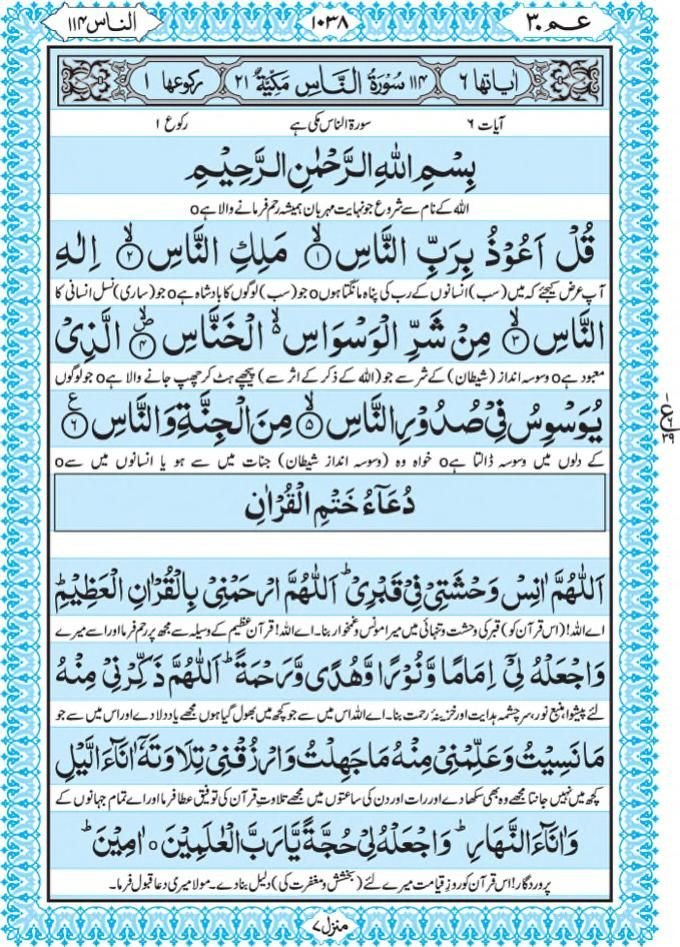 الناس ۱۱۴ ۱۰۳۸ عم ۳۰
اٰیاتھا ۶ ۱۱۴ سُوْرَۃُ النَّاسِ مَكِّيَّةٌ ۲۱ رکوعھا ۱
آیات ۶ سورۃ الناس مکی ہے رکوع ۱
بِسْمِ اللّٰهِ الرَّحْمٰنِ الرَّحِيْمِ
اللہ کے نام سے شروع جو نہایت مہربان ہمیشہ رحم فرمانے والا ہے o
قُلْ اَعُوْذُ بِرَبِّ النَّاسِ ۙ﴿۱﴾ مَلِكِ النَّاسِ ۙ﴿۲﴾ اِلٰهِ
آپ عرض کیجئے کہ میں (سب) انسانوں کے رب کی پناہ مانگتا ہوں o جو (سب) لوگوں کا بادشاہ ہے o جو (ساری) نسلِ انسانی کا
النَّاسِ ۙ﴿۳﴾ مِنْ شَرِّ الْوَسْوَاسِ ۙ۬ الْخَنَّاسِ ۪ۙ﴿۴﴾ الَّذِيْ
معبود ہے o وسوسہ انداز (شیطان) کے شر سے جو (اللہ کے ذکر کے اثر سے) پیچھے ہٹ کر چھپ جانے والا ہے o جو لوگوں
يُوَسْوِسُ فِيْ صُدُوْرِ النَّاسِ ۙ﴿۵﴾ مِنَ الْجِنَّةِ وَ النَّاسِ ﴿۶﴾ ع
کے دلوں میں وسوسہ ڈالتا ہے o خواہ وہ (وسوسہ انداز شیطان) جنات میں سے ہو یا انسانوں میں سے o
دُعَآءُ خَتْمِ الْقُرْاٰنِ
اَللّٰهُمَّ اٰنِسْ وَحْشَتِيْ فِيْ قَبْرِيْ ؕ اَللّٰهُمَّ ارْحَمْنِيْ بِالْقُرْاٰنِ الْعَظِيْمِ ؕ
اے اللہ! (اس قرآن کو) قبر کی وحشت و تنہائی میں میرا مونس و غمخوار بنا۔ اے اللہ! قرآن عظیم کے وسیلہ سے مجھ پر رحم فرما اور اسے میرے
وَاجْعَلْهُ لِيْٓ اِمَامًا وَّ نُوْرًا وَّهُدًى وَّرَحْمَةً ؕ اَللّٰهُمَّ ذَكِّرْنِيْ مِنْهُ
لئے پیشوا، منبع نور، سرچشمہ ہدایت اور خزینۂ رحمت بنا۔ اے اللہ اس میں سے جو کچھ میں بھول گیا ہوں مجھے یاد دلا دے اور اس میں سے جو
مَا نَسِيْتُ وَعَلِّمْنِيْ مِنْهُ مَا جَهِلْتُ وَارْزُقْنِيْ تِلَاوَتَهٗٓ اٰنَآءَ الَّيْلِ
کچھ میں نہیں جانتا مجھے وہ بھی سکھا دے اور رات اور دن کی ساعتوں میں مجھے تلاوتِ قرآن کی توفیق عطا فرما اور اے تمام جہانوں کے
وَ اٰنَآءَ النَّهَارِ ؕ وَاجْعَلْهُ لِيْ حُجَّةً يَّا رَبَّ الْعٰلَمِيْنَ o اٰمِيْنَ ؕ
پروردگار! اس قرآن کو روزِ قیامت میرے لئے (بخشش و مغفرت کی) دلیل بنا دے۔ مولا میری دعا قبول فرما۔
منزل ۷